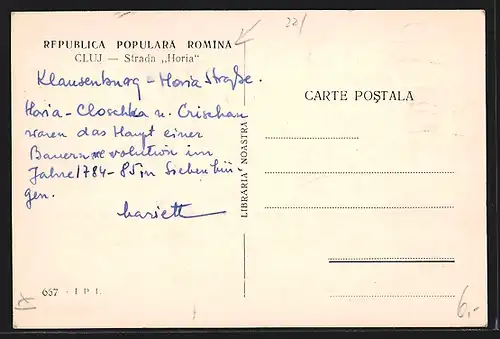 22/
REPUBLICA POPULARĂ ROMÎNĂ
CLUJ — Strada „Horia"
Klausenburg - Horia Straße.
Horia - Closchka u. Crischan
waren das Haupt einer
Bauernrevolution im
Jahre 1784-85 in Siebenbür-
gen.
Mariett
667 - I P I.
LIBRĂRIA NOASTRĂ
CARTE POȘTALA
6,-